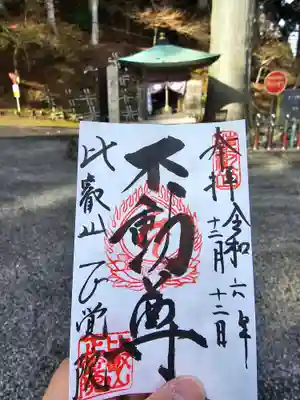 奉拝
令和六年
十二月十二日
不動尊
比叡山